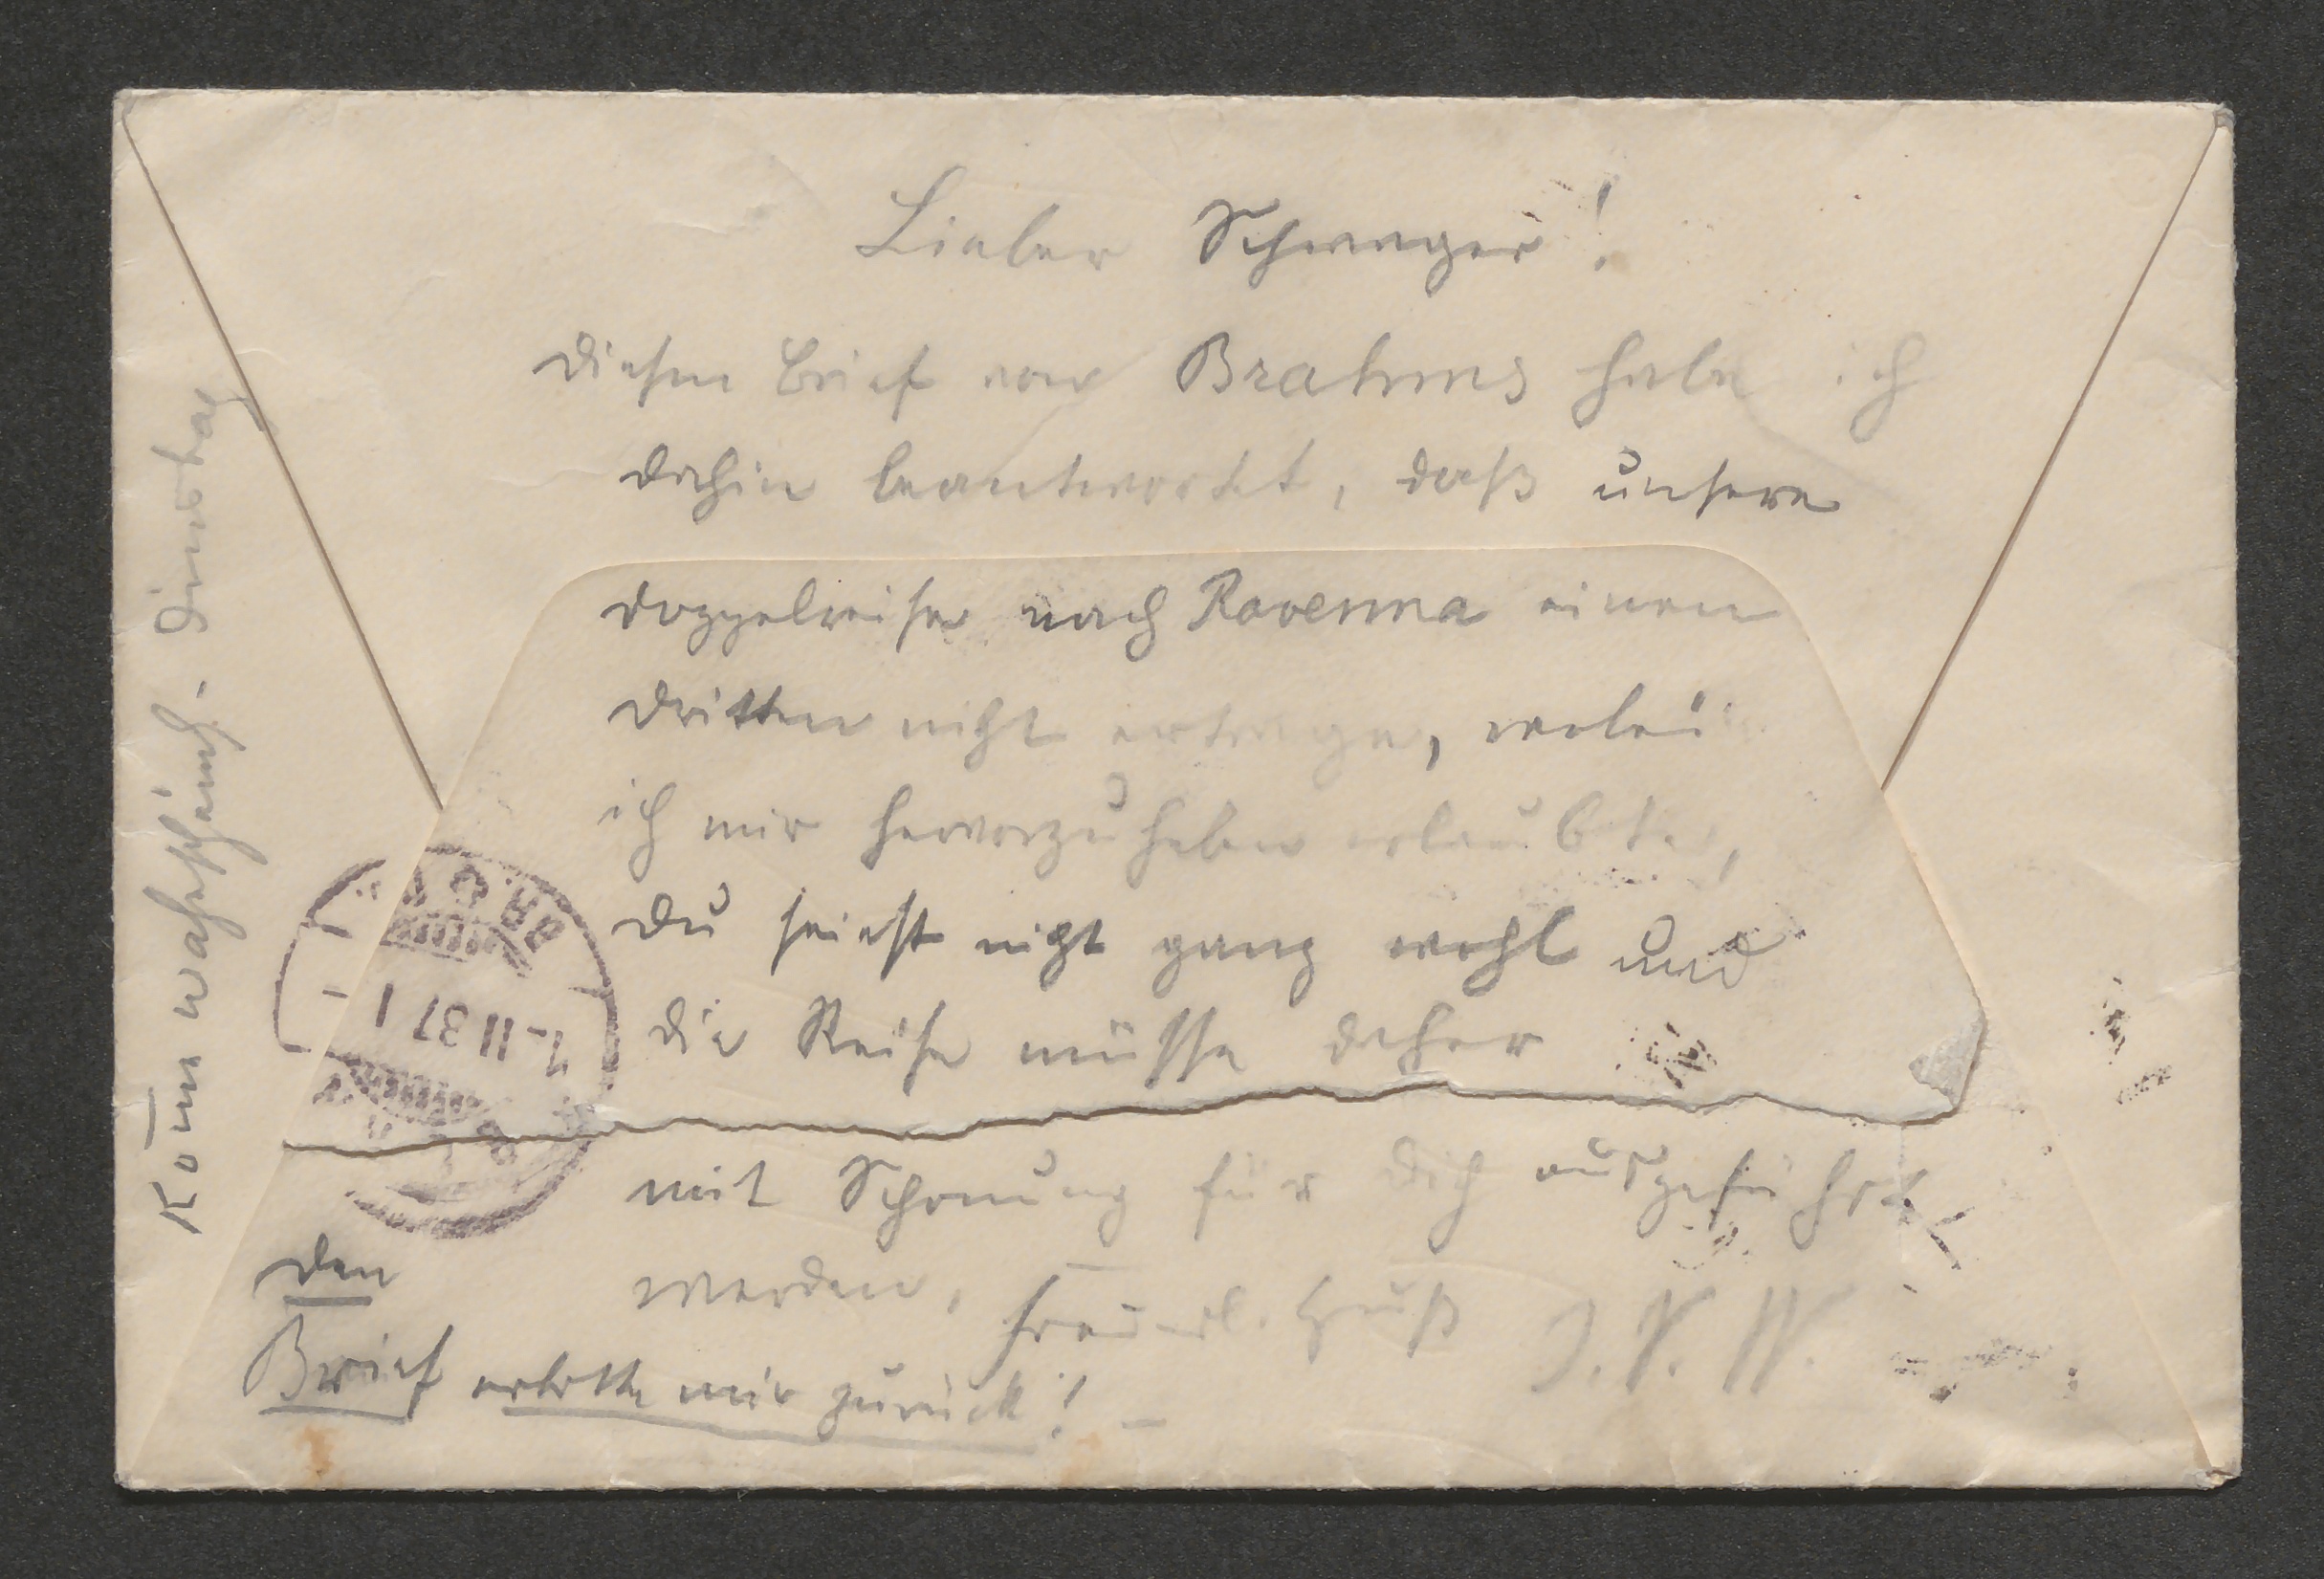 Lieber Schwager!
diesen Brief von Brahms habe ich
dahin beantwortet, daß unsere
Doppelreise nach Ravenna einen
dritten nicht ertrage, wobei
ich mir hervorzuheben erlaubte,
Du seiest nicht ganz wohl und
die Reise müsse daher
mit Schonung für Dich ausgeführt
werden, freundl. Gruß J. V. W.
den
Brief erbitte mir zurück! –
Kom̅ wahrscheinl. Dinstag
7. II 37 I –